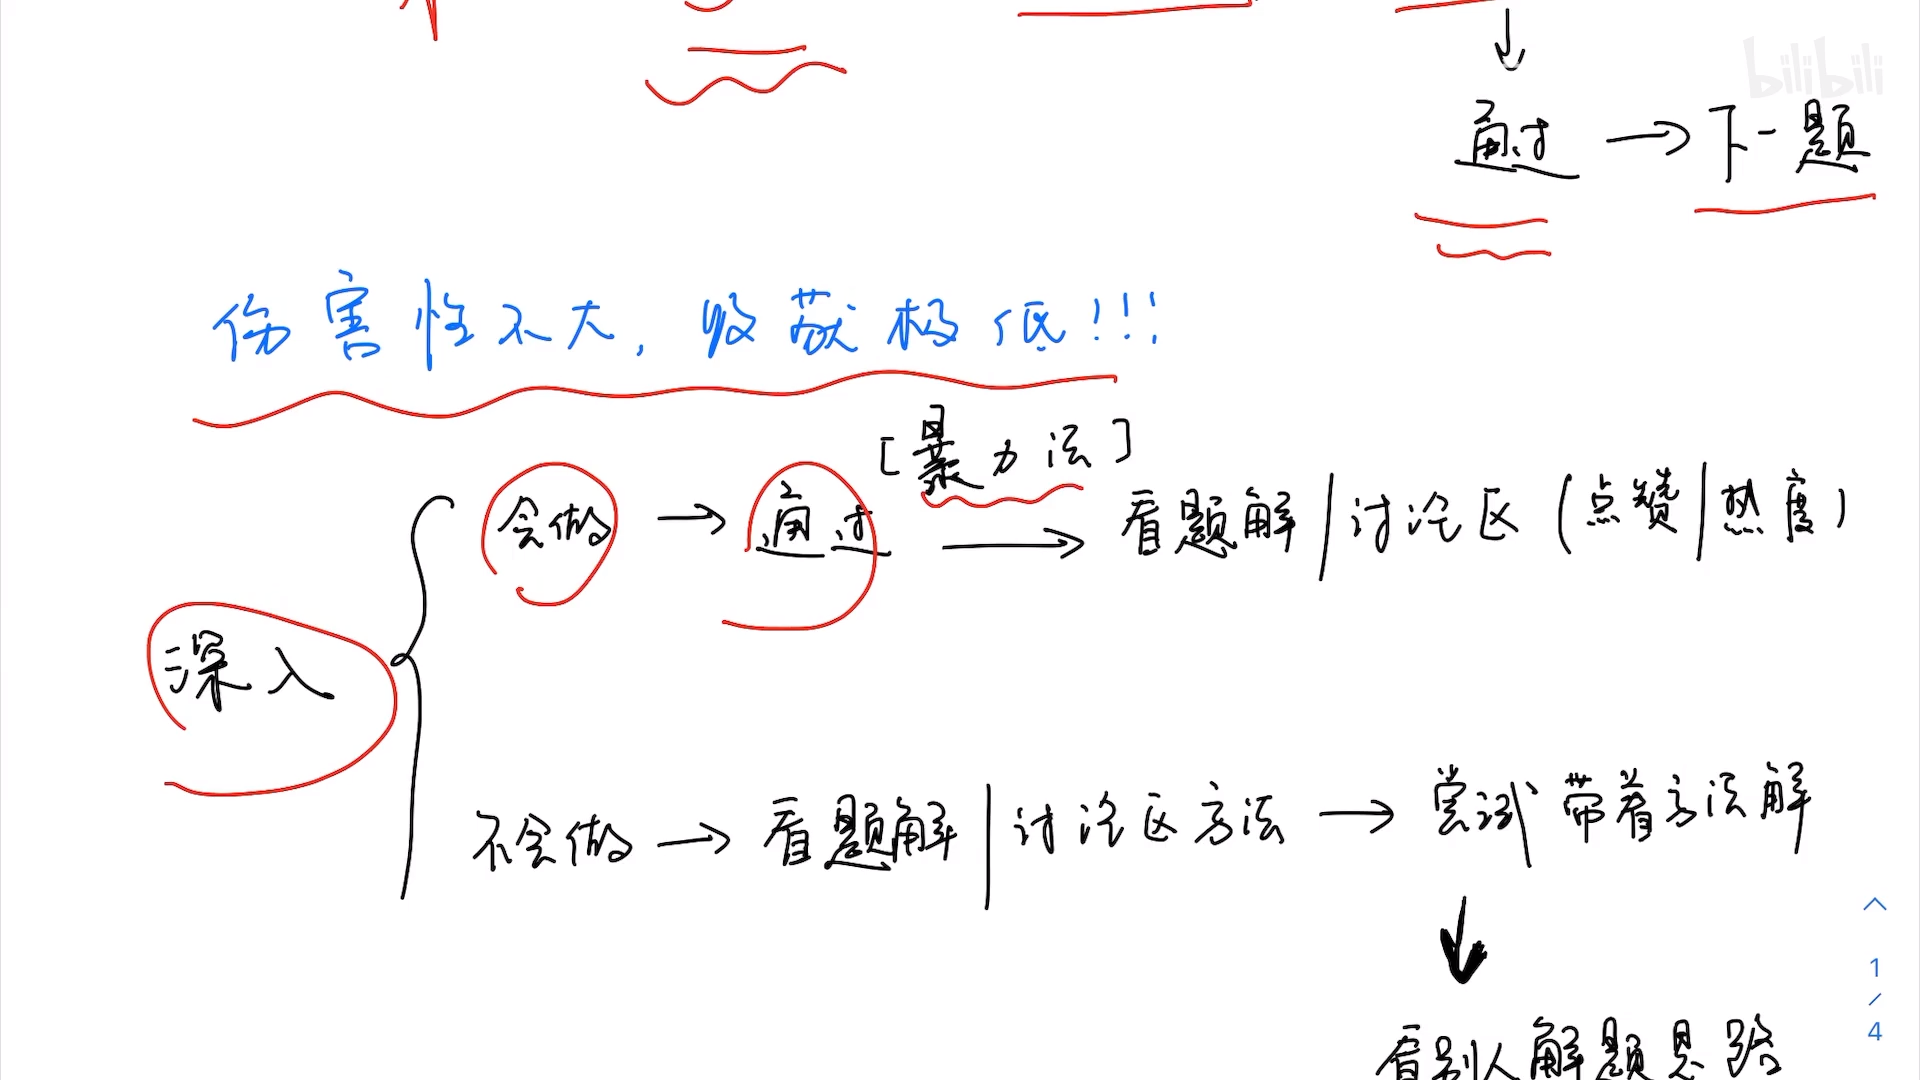 bilibili
通过 → 下一题
伤害性不大, 收获极低!!!
[暴力法]
会做 → 通过 → 看题解 | 讨论区 (点赞 | 热度)
深入
不会做 → 看题解 | 讨论区方法 → 尝试带着方法解
看别人解题思路
1/4